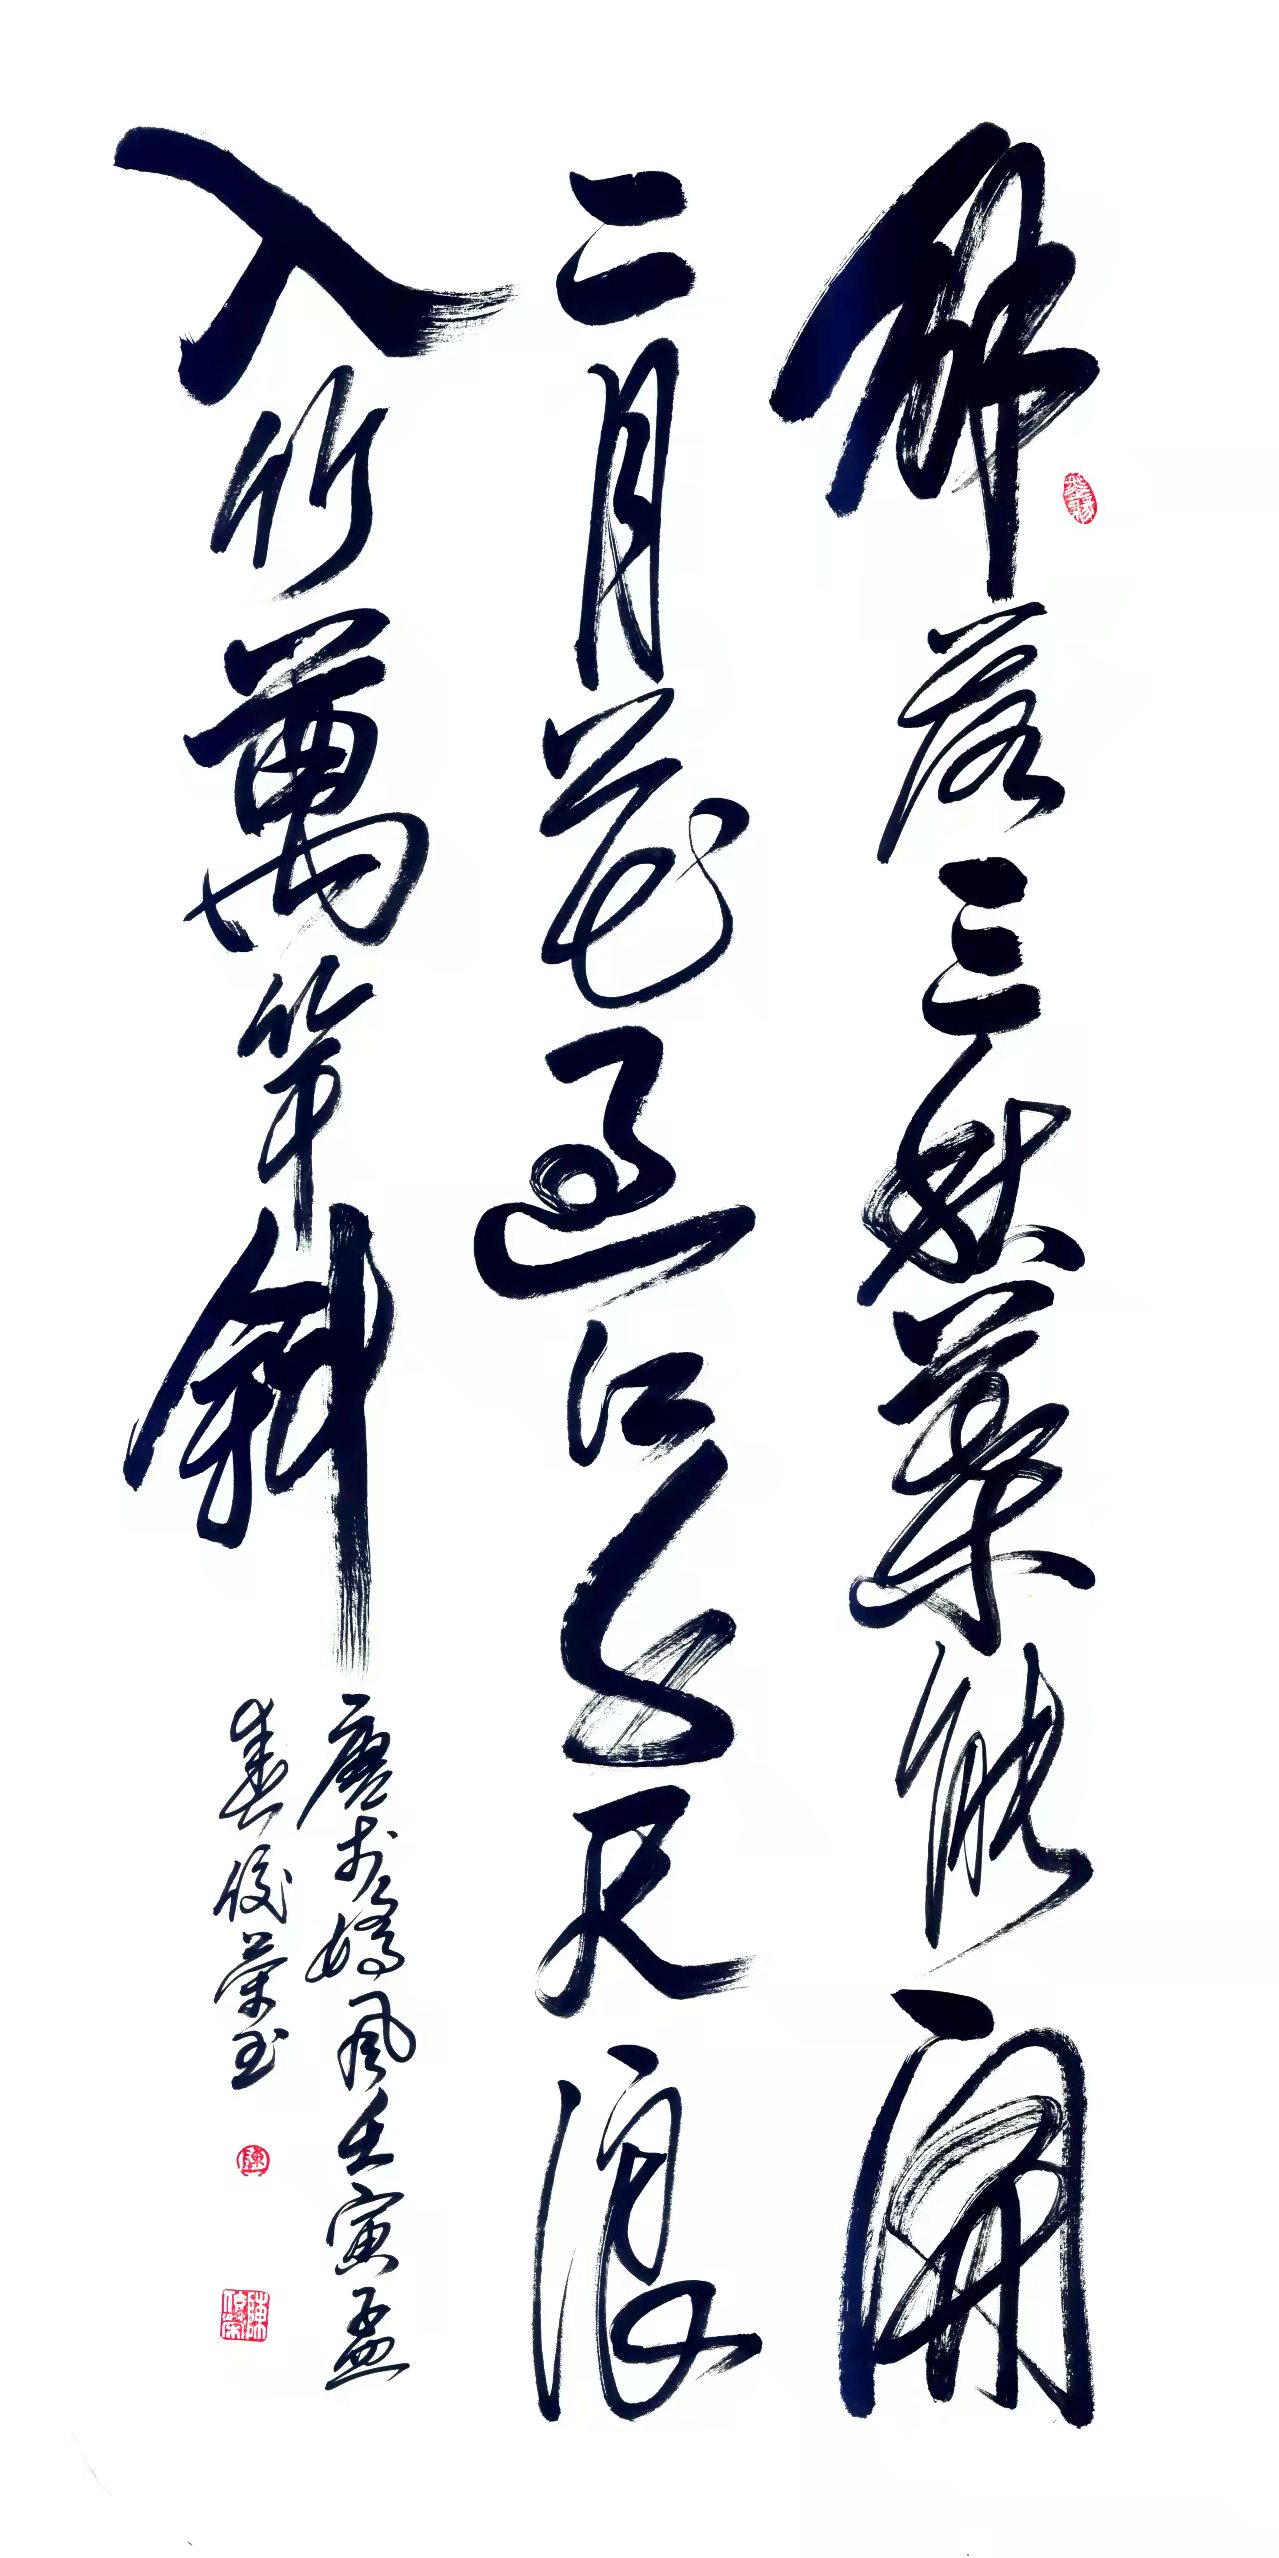 解落三秋葉能開
二月花過江千尺浪
入竹萬竿斜
唐李嶠風壬寅孟
春俊榮
陳
陳俊榮